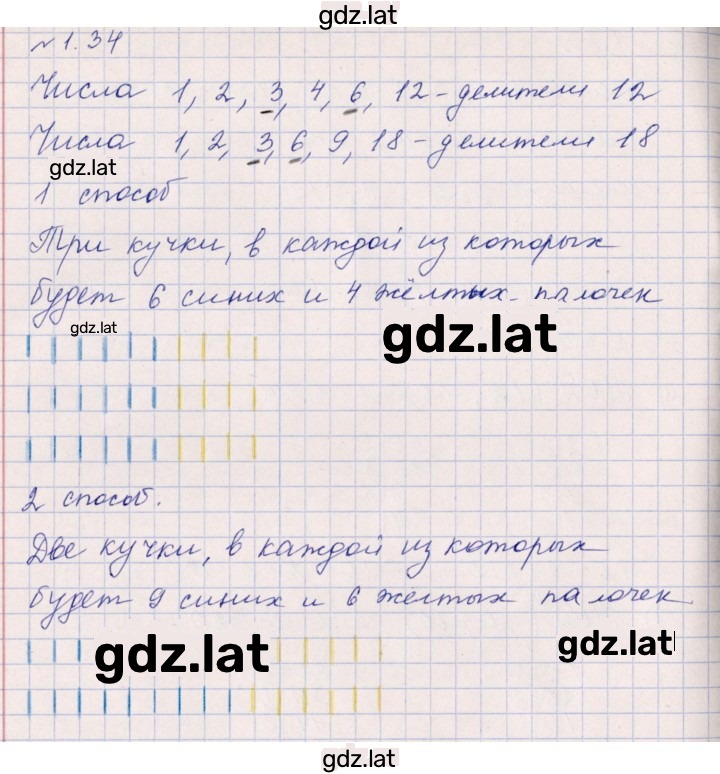 gdz.lat
№ 1.34
Числа 1, 2, 3, 4, 6, 12 - делители 12
Числа 1, 2, 3, 6, 9, 18 - делители 18
gdz.lat
1 способ
Три кучки, в каждой из которых
будет 6 синих и 4 жёлтых палочек
gdz.lat
gdz.lat
2 способ.
Две кучки, в каждой из которых
будет 9 синих и 6 желтых палочек
gdz.lat
gdz.lat
gdz.lat